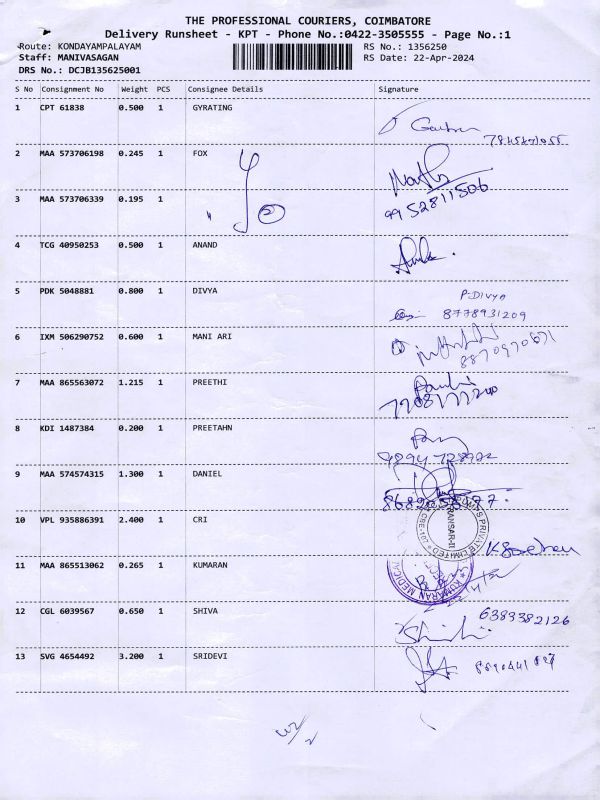 THE PROFESSIONAL COURIERS, COIMBATORE
Delivery Runsheet - KPT - Phone No.:0422-3505555 - Page No.:1
Route: KONDAYAMPALAYAM RS No.: 1356250
Staff: MANIVASAGAN RS Date: 22-Apr-2024
DRS No.: DCJB135625001
S No Consignment No Weight PCS Consignee Details Signature
1 CPT 61838 0.500 1 GYRATING
2 MAA 573706198 0.245 1 FOX
9952811506
3 MAA 573706339 0.195 1
4 TCG 40950253 0.500 1 ANAND
5 PDK 5048881 0.800 1 DIVYA P.DIVYA
8778931209
6 IXM 506290752 0.600 1 MANI ARI
8870970671
7 MAA 865563072 1.215 1 PREETHI
8 KDI 1487384 0.200 1 PREETAHN
9 MAA 574574315 1.300 1 DANIEL
10 VPL 935886391 2.400 1 CRI
PRIVATE LIMITED
11 MAA 865513062 0.265 1 KUMARAN
KUMARAN MEDICAL
12 CGL 6039567 0.650 1 SHIVA 6389382126
13 SVG 4654492 3.200 1 SRIDEVI